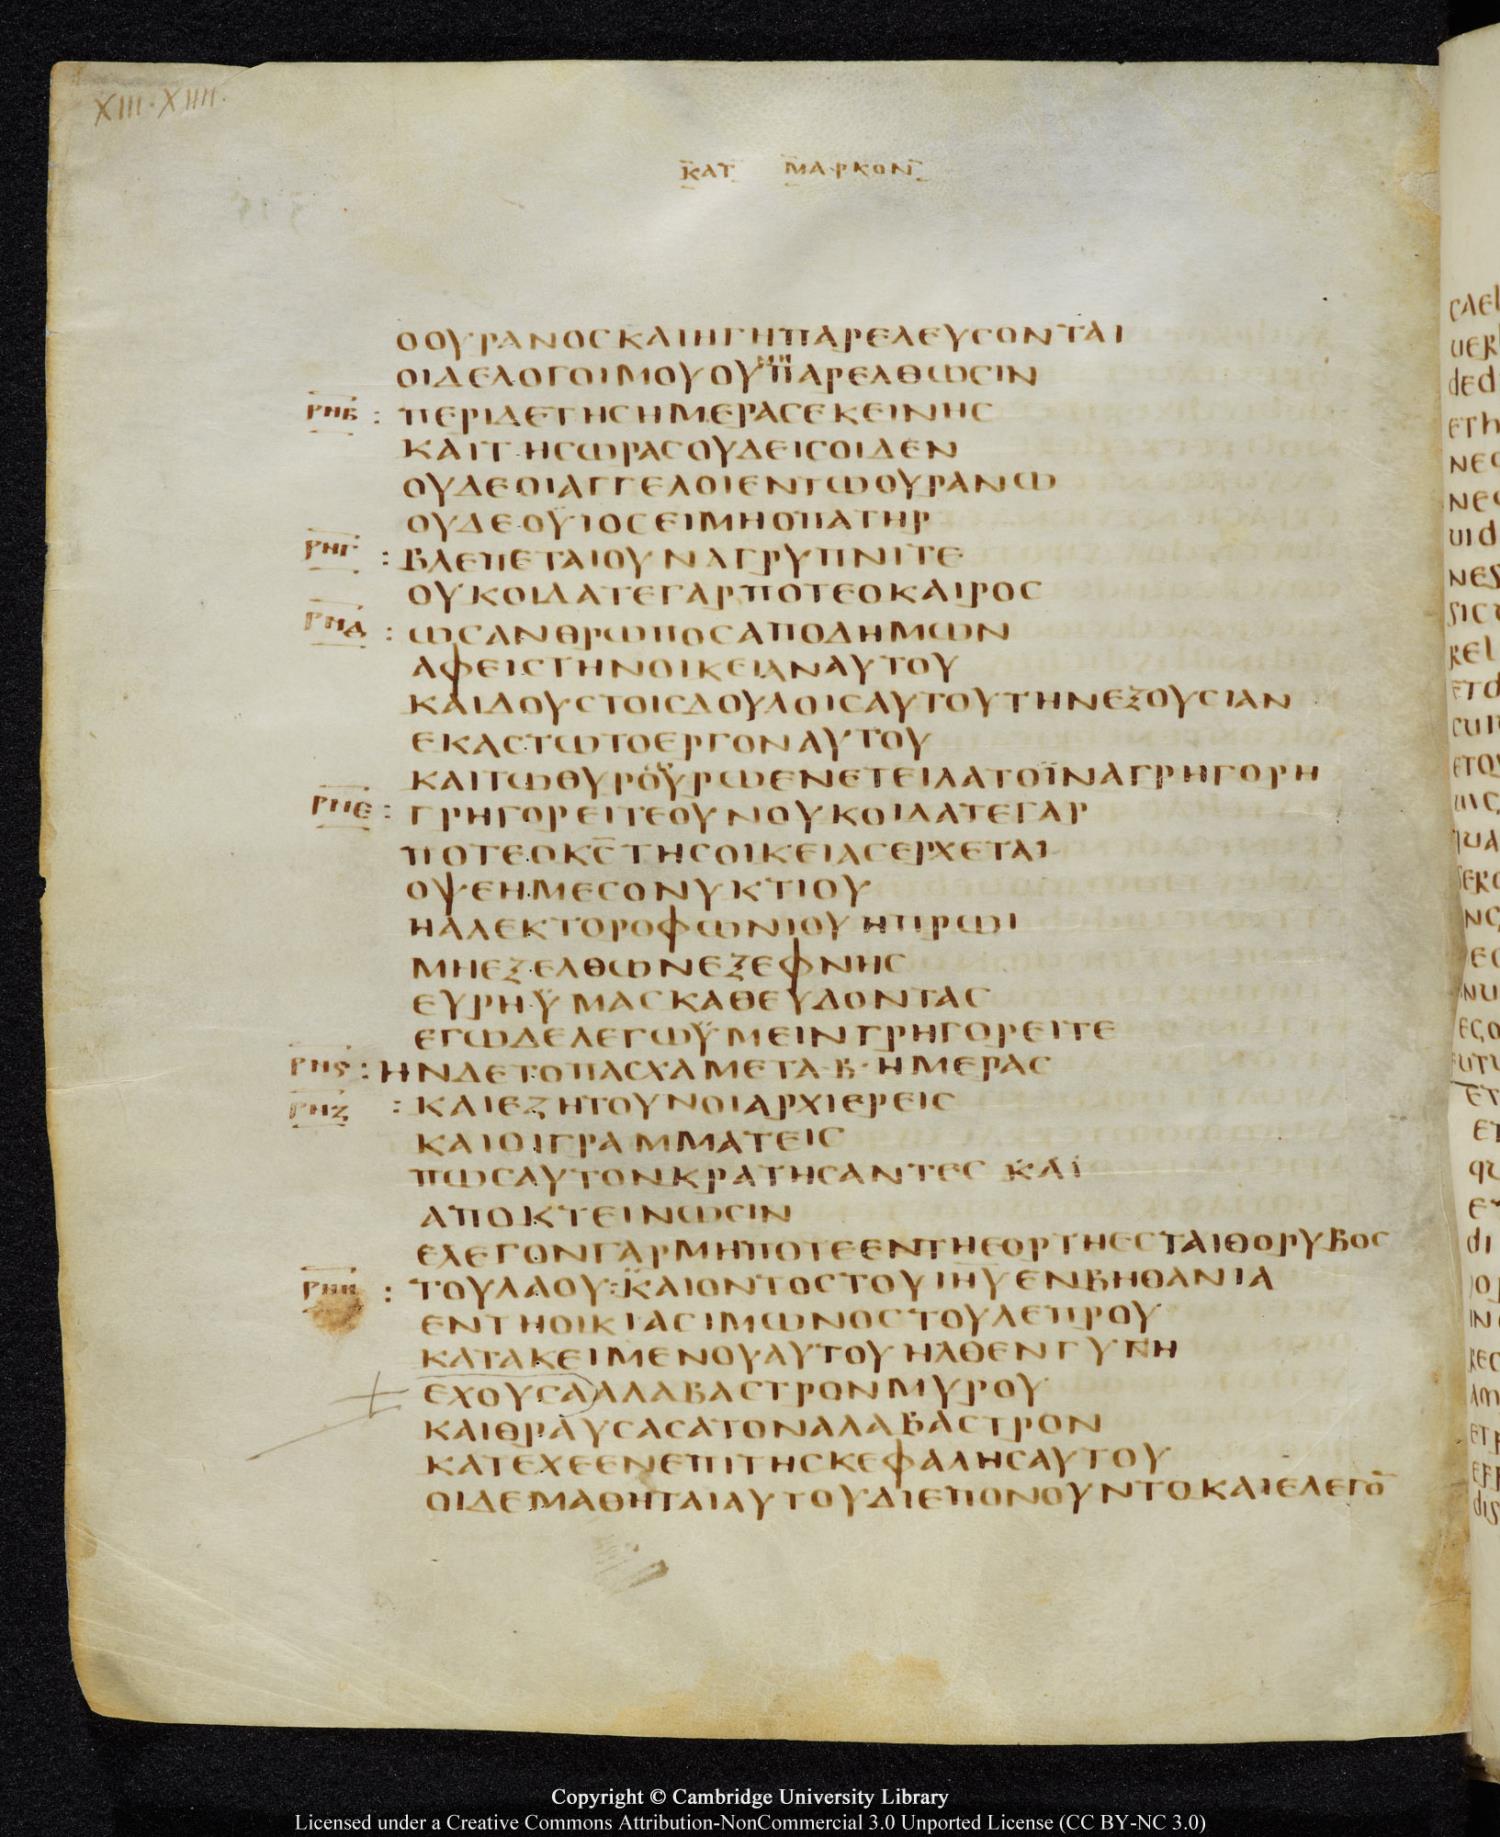 XIII·XIIII·
ΚΑΤ ΜΑΡΚΟΝ
ΟΟΥΡΑΝΟϹΚΑΙΗΓΗΠΑΡΕΛΕΥϹΟΝΤΑΙ
ΟΙΔΕΛΟΓΟΙΜΟΥΟΥΜΗΠΑΡΕΛΘΩϹΙΝ
ΡΗΒ : ΠΕΡΙΔΕΤΗϹΗΜΕΡΑϹΕΚΕΙΝΗϹ
ΚΑΙΤΗϹΩΡΑϹΟΥΔΕΙϹΟΙΔΕΝ
ΟΥΔΕΟΙΑΓΓΕΛΟΙΕΝΤΩΟΥΡΑΝΩ
ΟΥΔΕΟΫΙΟϹΕΙΜΗΟΠΑΤΗΡ
ΡΗΓ : ΒΛΕΠΕΤΑΙΟΥΝΑΓΡΥΠΝΙΤΕ
ΟΥΚΟΙΔΑΤΕΓΑΡΠΟΤΕΟΚΑΙΡΟϹ
ΡΗΔ : ΩϹΑΝΘΡΩΠΟϹΑΠΟΔΗΜΩΝ
ΑΦΕΙϹΤΗΝΟΙΚΕΙΑΝΑΥΤΟΥ
ΚΑΙΔΟΥϹΤΟΙϹΔΟΥΛΟΙϹΑΥΤΟΥΤΗΝΕΞΟΥϹΙΑΝ
ΕΚΑϹΤΩΤΟΕΡΓΟΝΑΥΤΟΥ
ΚΑΙΤΩΘΥΡΟΥΡΩΕΝΕΤΕΙΛΑΤΟΪΝΑΓΡΗΓΟΡΗ
ΡΗΕ : ΓΡΗΓΟΡΕΙΤΕΟΥΝΟΥΚΟΙΔΑΤΕΓΑΡ
ΠΟΤΕΟΚϹ̅ΤΗϹΟΙΚΕΙΑϹΕΡΧΕΤΑΙ
ΟΨΕΗΜΕϹΟΝΥΚΤΙΟΥ
ΗΑΛΕΚΤΟΡΟΦΩΝΙΟΥΗΠΡΩΙ
ΜΗΕΞΕΛΘΩΝΕΞΕΦΝΗϹ
ΕΥΡΗΫΜΑϹΚΑΘΕΥΔΟΝΤΑϹ
ΕΓΩΔΕΛΕΓΩΫΜΕΙΝΓΡΗΓΟΡΕΙΤΕ
ΡΗϚ : ΗΝΔΕΤΟΠΑϹΧΑΜΕΤΑ·Β·ΗΜΕΡΑϹ
ΡΗΖ : ΚΑΙΕΖΗΤΟΥΝΟΙΑΡΧΙΕΡΕΙϹ
ΚΑΙΟΙΓΡΑΜΜΑΤΕΙϹ
ΠΩϹΑΥΤΟΝΚΡΑΤΗϹΑΝΤΕϹ ΚΑΙ
ΑΠΟΚΤΕΙΝΩϹΙΝ
ΕΛΕΓΟΝΓΑΡΜΗΠΟΤΕΕΝΤΗΕΟΡΤΗΕϹΤΑΙΘΟΡΥΒΟϹ
ΡΗΗ : ΤΟΥΛΑΟΥ:ΚΑΙΟΝΤΟϹΤΟΥΙΗΥ̅ΕΝΒΗΘΑΝΙΑ
ΕΝΤΗΟΙΚΙΑϹΙΜΩΝΟϹΤΟΥΛΕΠΡΟΥ
ΚΑΤΑΚΕΙΜΕΝΟΥΑΥΤΟΥΗΛΘΕΝΓΥΝΗ
ΕΧΟΥϹΑΑΛΑΒΑϹΤΡΟΝΜΥΡΟΥ
ΚΑΙΘΡΑΥϹΑϹΑΤΟΝΑΛΑΒΑϹΤΡΟΝ
ΚΑΤΕΧΕΕΝΕΠΙΤΗϹΚΕΦΑΛΗϹΑΥΤΟΥ
ΟΙΔΕΜΑΘΗΤΑΙΑΥΤΟΥΔΙΕΠΟΝΟΥΝΤΟΚΑΙΕΛΕΓΟ̅
Copyright © Cambridge University Library
Licensed under a Creative Commons Attribution-NonCommercial 3.0 Unported License (CC BY-NC 3.0)